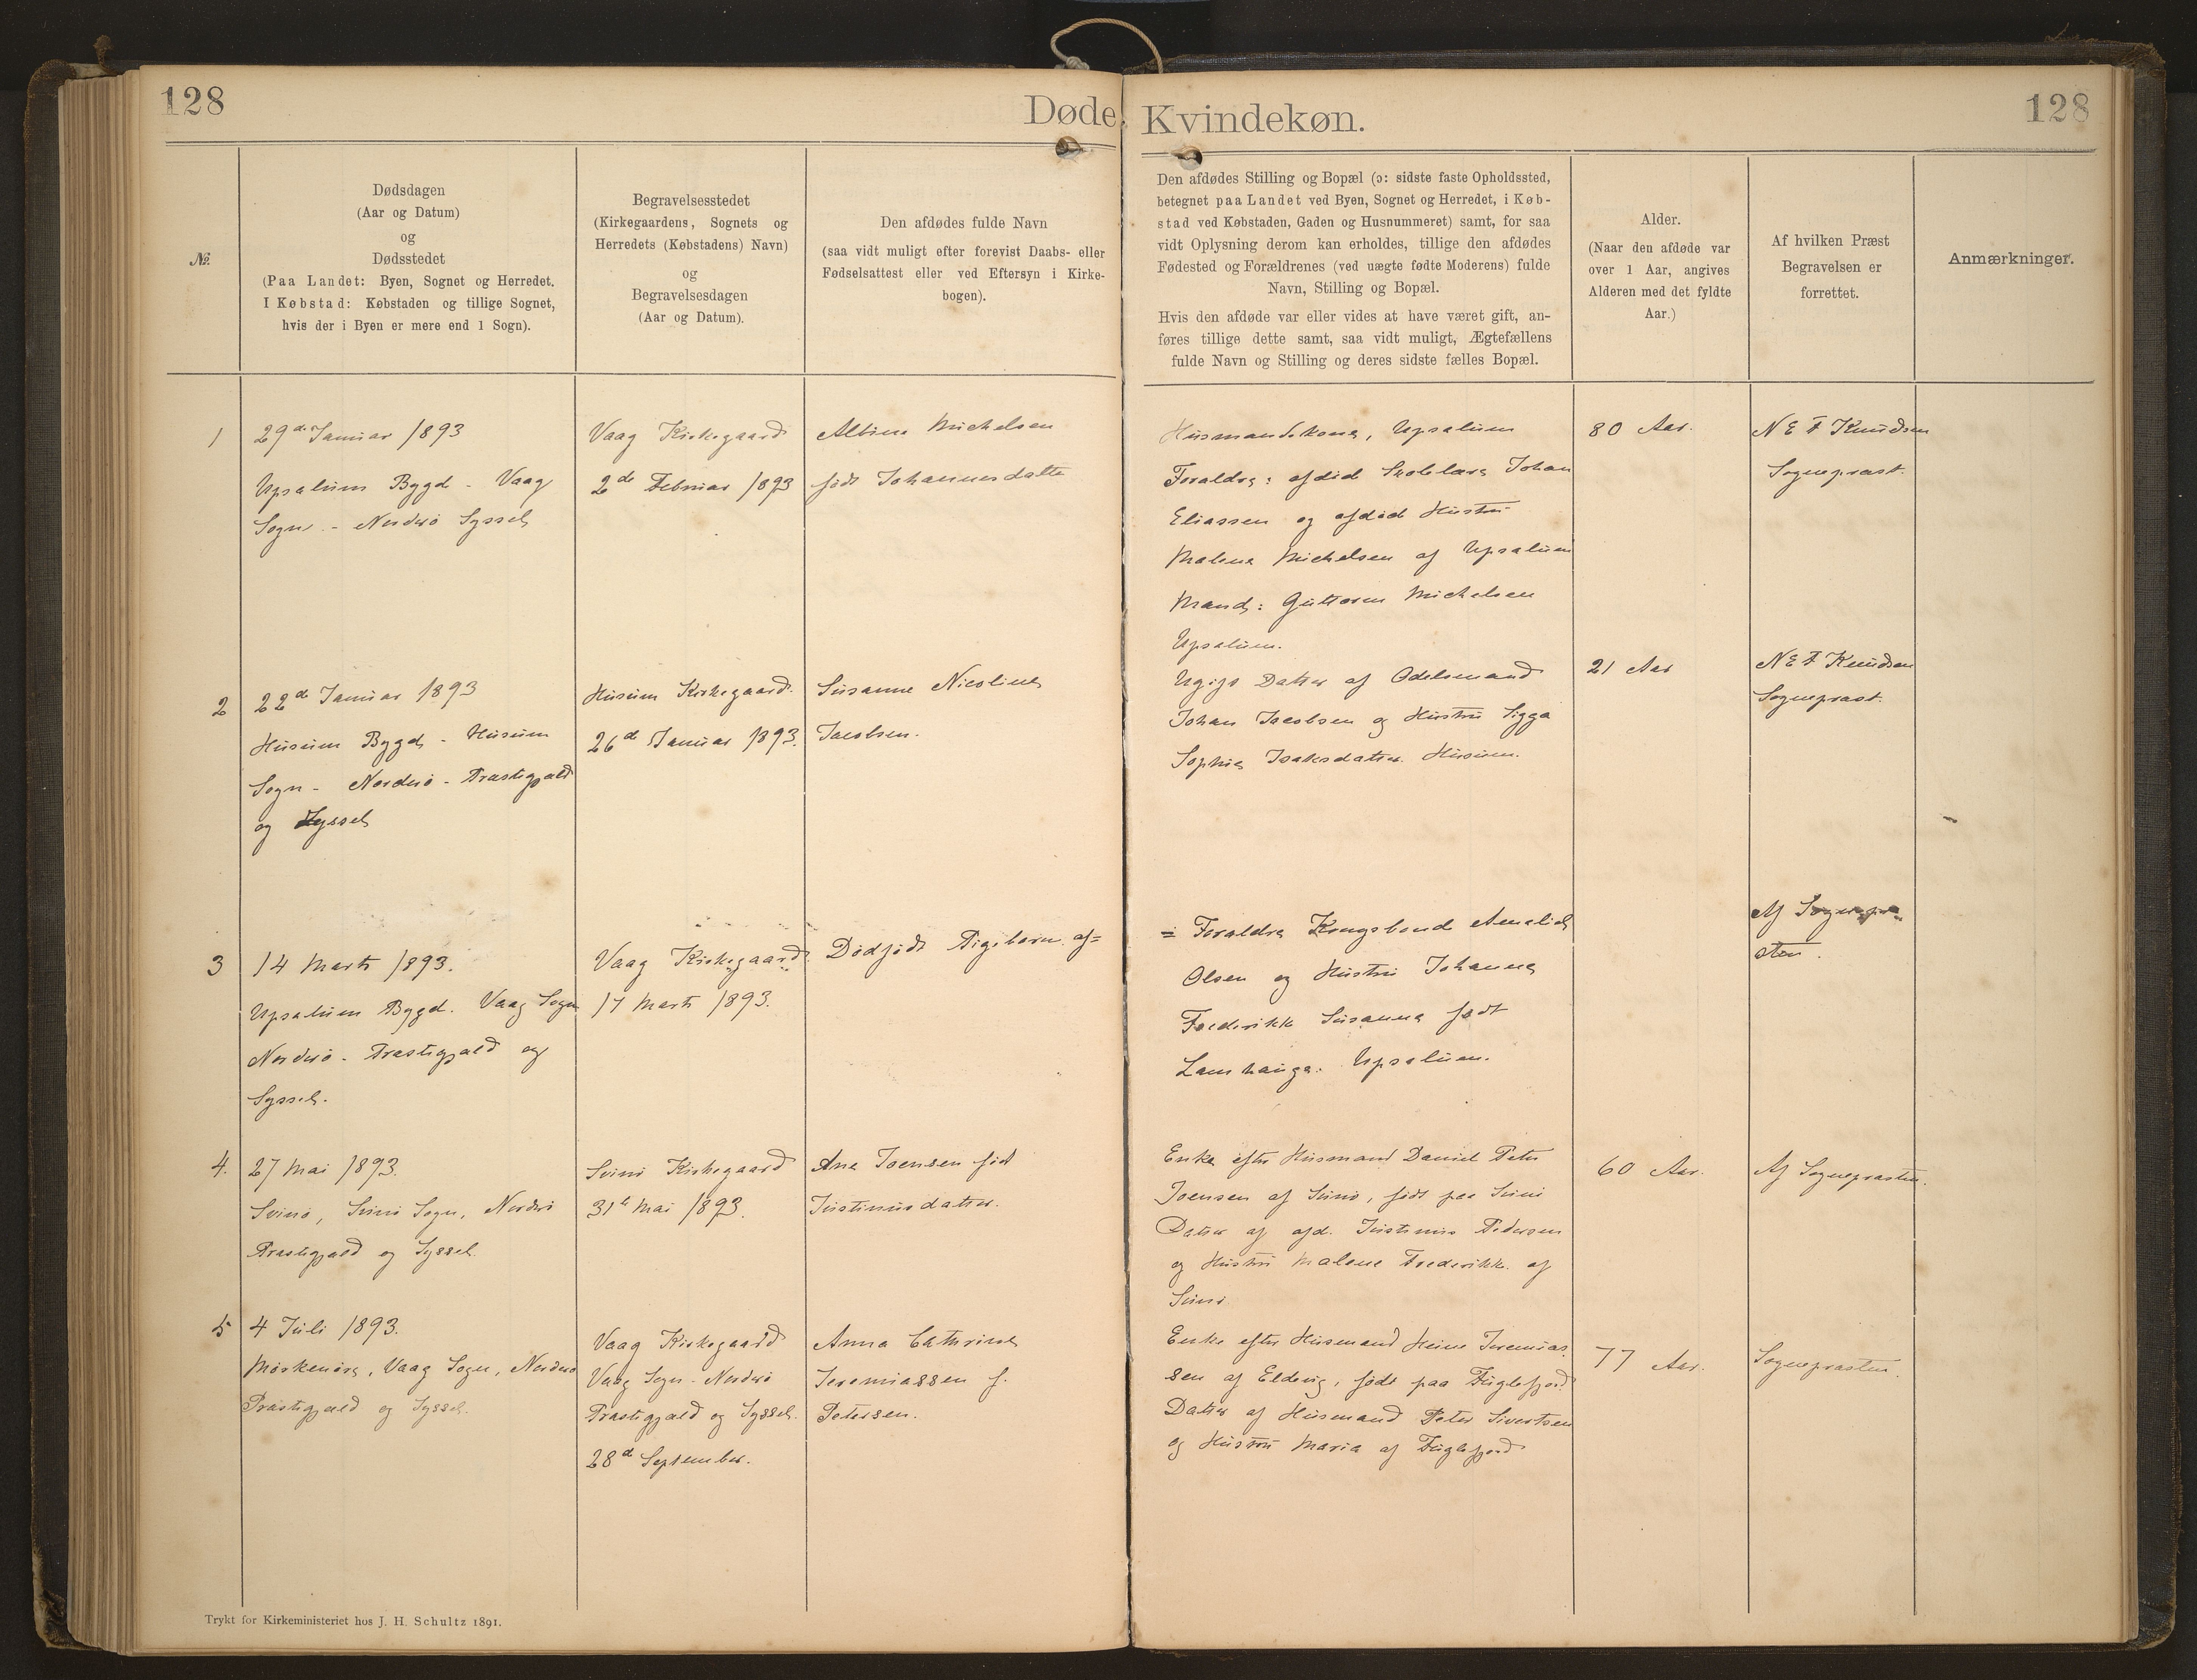 128
Døde, Kvindekøn.
128
№.
Dødsdagen
(Aar og Datum)
og
Dødsstedet
(Paa Landet: Byen, Sognet og Herredet.
I Købstad: Købstaden og tillige Sognet,
hvis der i Byen er mere end 1 Sogn).
Begravelsesstedet
(Kirkegaardens, Sognets og
Herredets (Købstadens) Navn)
og
Begravelsesdagen
(Aar og Datum).
Den afdødes fulde Navn
(saa vidt muligt efter forevist Daabs- eller
Fødselsattest eller ved Eftersyn i Kirke-
bogen).
Den afdødes Stilling og Bopæl (ɔ: sidste faste Opholdssted,
betegnet paa Landet ved Byen, Sognet og Herredet, i Køb-
stad ved Købstaden, Gaden og Husnummeret) samt, for saa
vidt Oplysning derom kan erholdes, tillige den afdødes
Fødested og Forældrenes (ved uægte fødte Moderens) fulde
Navn, Stilling og Bopæl.
Hvis den afdøde var eller vides at have været gift, an-
føres tillige dette samt, saa vidt muligt, Ægtefællens
fulde Navn og Stilling og deres sidste fælles Bopæl.
Alder.
(Naar den afdøde var
over 1 Aar, angives
Alderen med det fyldte
Aar.)
Af hvilken Præst
Begravelsen er
forrettet.
Anmærkninger.
1
29de Januar 1893
Upsalum Bygd - Vaag
Sogn - Norderø Syssel
Vaag Kirkegaard
2de Februar 1893
Albine Michelsen
født Johannesdatte
Husmandskone, Upsalum
Forældre: afdød Skolelære Johan
Eliassen og afdød Hustru
Malene Michelsen af Upsalum
Mand: Guttorm Michelsen
Upsalum.
80 Aar.
N E F Knudsen
Sognepræst.
2
22de Januar 1893
Husum Bygd - Husum
Sogn - Norderø - Præstegjæld
og Syssel
Husum Kirkegaard.
26de Januar 1893.
Susanne Nicoline
Jacobsen.
Ugift Datter af Odelsmand
Johan Jacobsen og Hustru Sigga
Sophie Isaksdatter. Husum.
21 Aar
N E F Knudsen
Sognepræst.
3
14 Marts 1893.
Upsalum Bygd. Vaag Sogn
Norderø - Præstegjæld og
Syssel.
Vaag Kirkegaard.
17 Marts 1893.
Dødfødt Pigebarn af=
= Forældre Kongsbonde
Olsen og Hustru Johanne
Frederikke Susanna født
Lamhauge. Upsalum.
Af Sognepræ-
sten.
4.
27 Mai 1893.
Svinø, Svinø Sogn, Norderø
Præstegjæld og Syssel.
Svinø Kirkegaard
31te Mai 1893.
Ane Joensen født
Justinusdatter.
Enke efter Husmand Daniel Peter
Joensen af Svinø, født paa Svinø
Datter af afd. Justinus Pedersen
og Hustru Malene Frederikke af
Svinø.
60 Aar.
Af Sognepræsten.
5
4 Juli 1893.
Morskenøre, Vaag Sogn, Norderø
Præstegjæld og Syssel.
Vaag Kirkegaard
Vaag Sogn - Norderø
Præstegjæld og Syssel.
28de September.
Anna Cathrine
Jeremiassen f.
Petersen.
Enke efter Husmand Heine Jeremias
sen af Eldevig, født paa Fuglefjord.
Datter af Husmand Peter Sivertsen
og Hustru Maria af Fuglefjord
77 Aar.
Sognepræsten.
Trykt for Kirkeministeriet hos J. H. Schultz 1891.